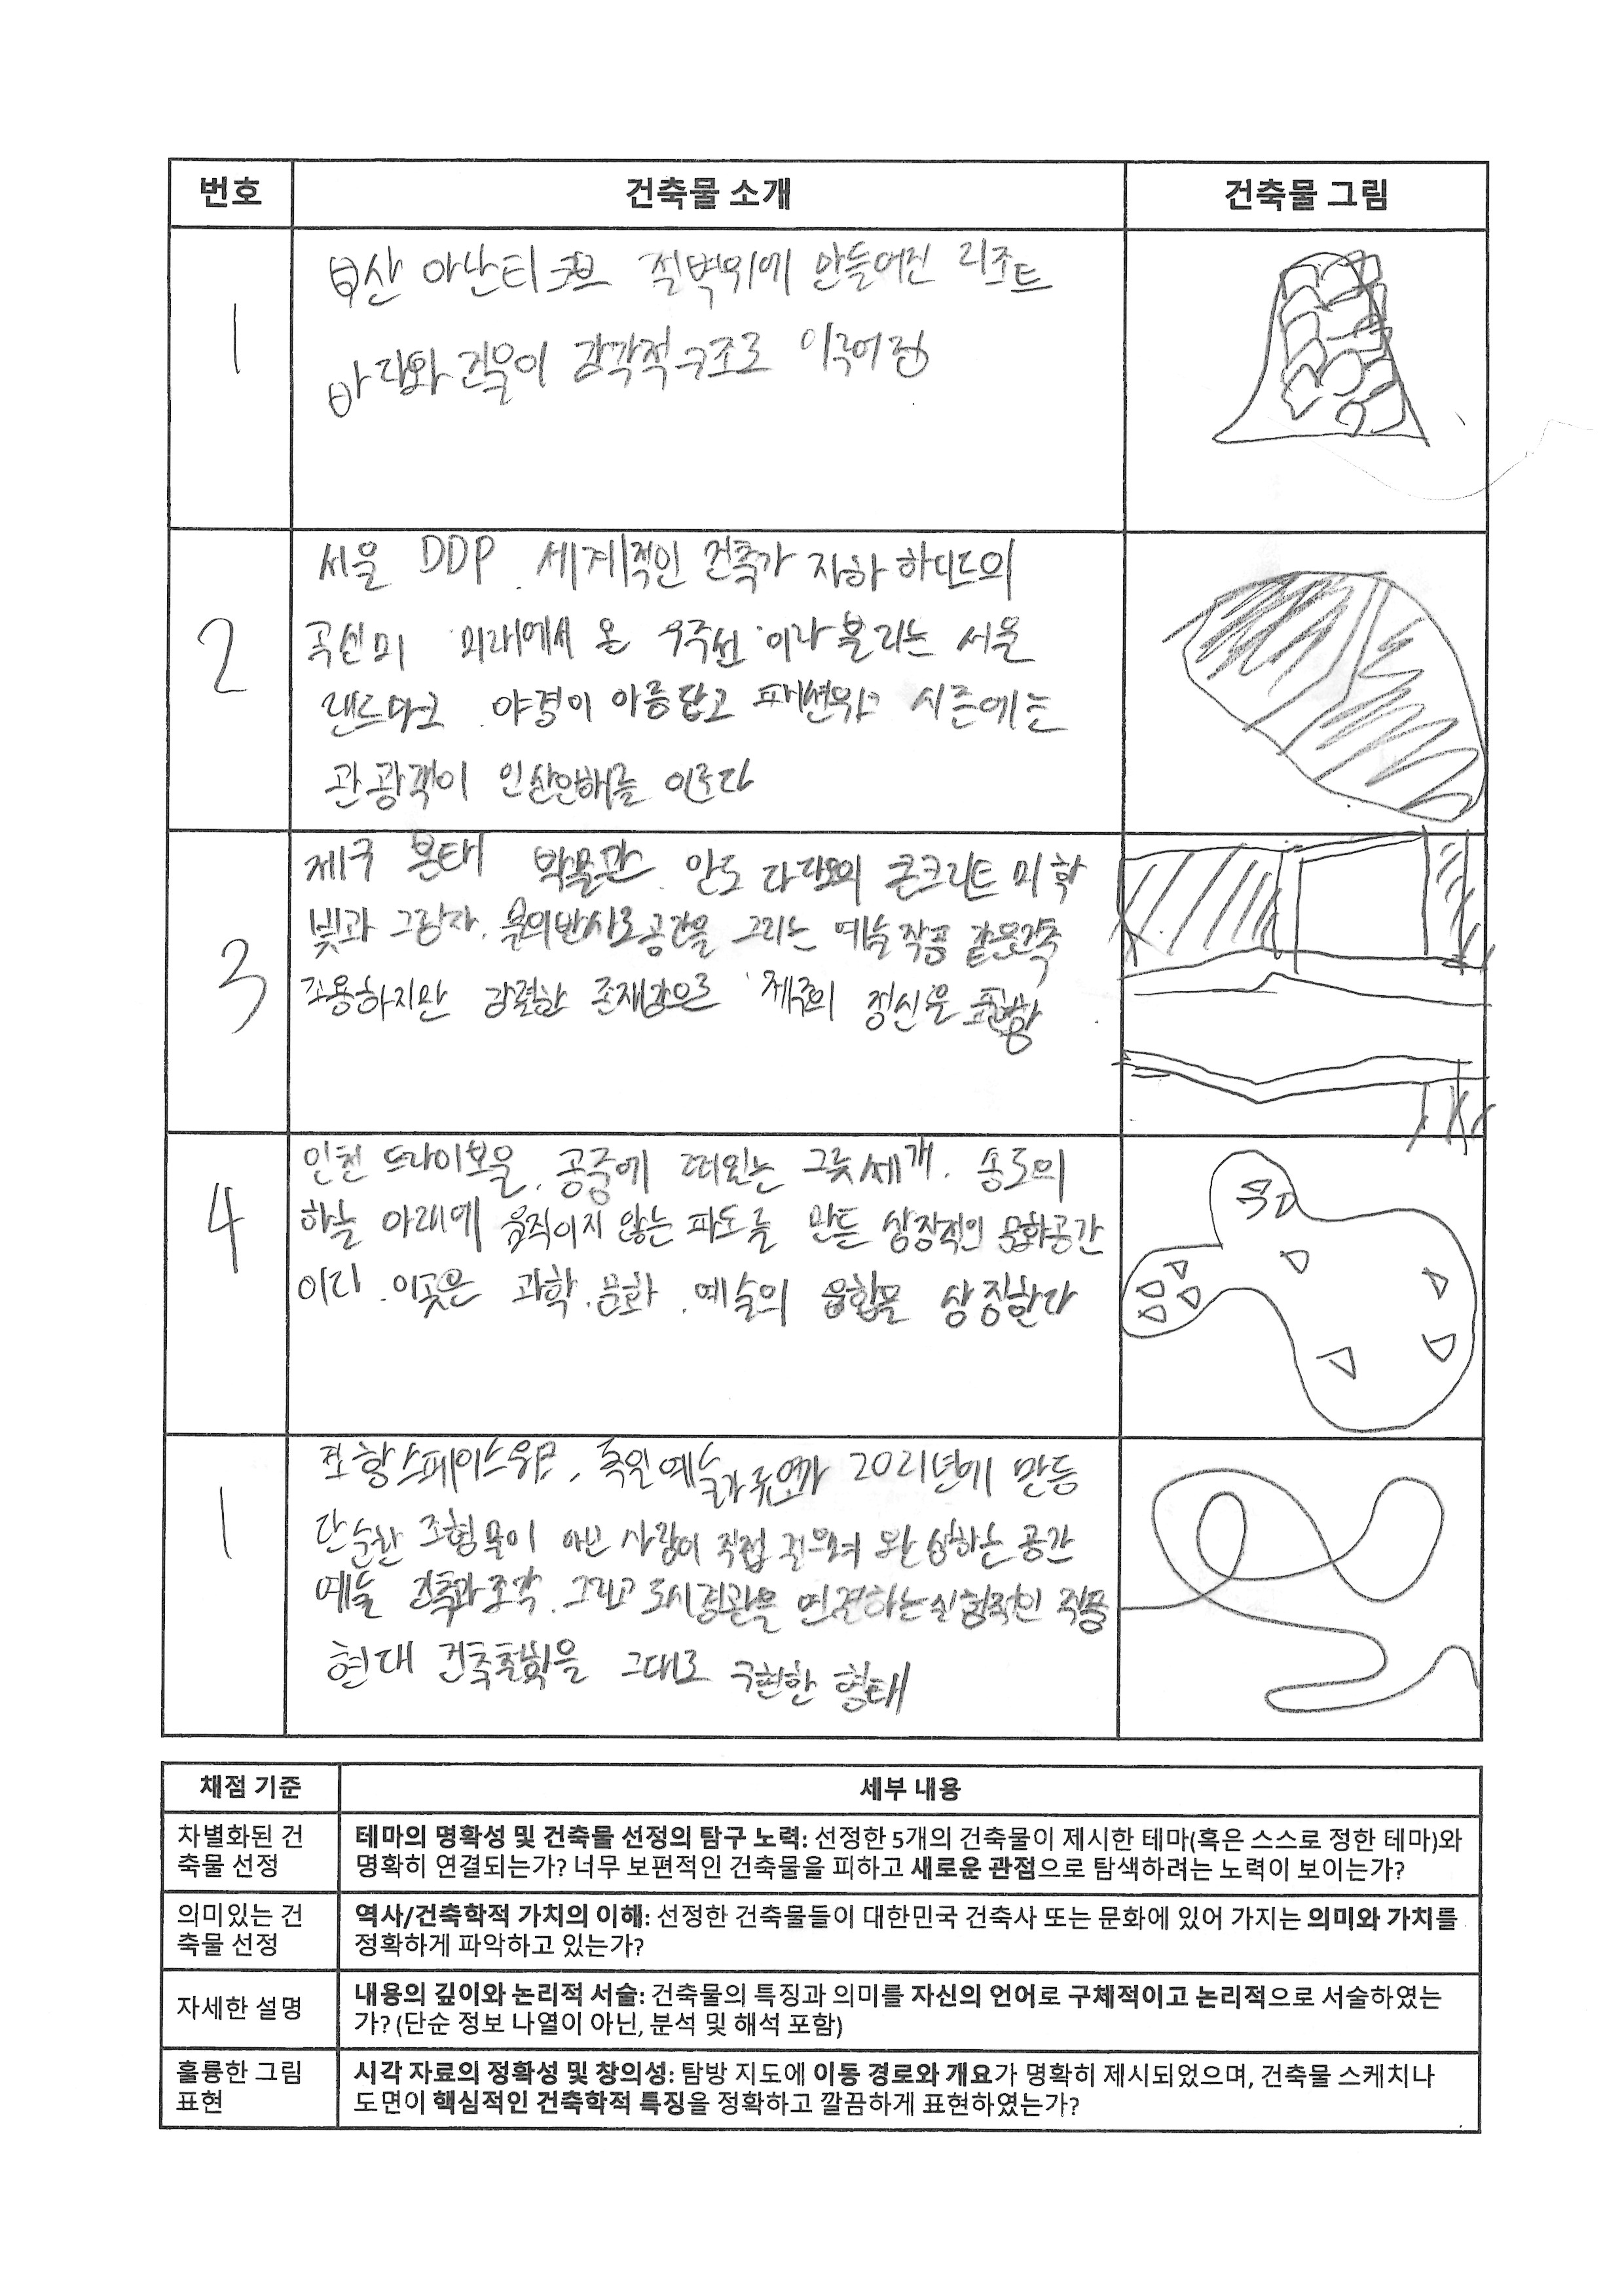 번호 건축물 소개 건축물 그림
1
부산 아난티코브 절벽위에 만들어진 리조트
바다와 건물이 감각적구조로 이루어짐
2
서울 DDP. 세계적인 건축가 자하 하디드의
곡선미 '미래에서 온 우주선'이라 불리는 서울
랜드마크. 야경이 아름답고 패션위크 시즌에는
관광객이 인산인해를 이룬다
3
제주 본태 박물관. 안도 다다오의 콘크리트 미학
빛과 그림자. 물의반사로공간을 그리는 예술작품 같은건축
조용하지만 강렬한 존재감으로 '제주의 정신을 표현함
4
인천 트라이보울. 공중에 떠있는 그릇세개. 송도의
하늘 아래에 움직이지 않는 파도를 만든 상징적인 문화공간
이다. 이곳은 과학.문화.예술의 융합을 상징한다
1
포항스페이스워크, 독일예술가 2021년에 만듬
단순한 조형물이 아닌 사람이 직접 걸으며 완성하는 공간
예술 건축과조각. 그리고 도시경관을 연결하는실험적인 작품
현대 건축철학을 그대로 구현한 형태
채점 기준 세부 내용
차별화된 건
축물 선정
테마의 명확성 및 건축물 선정의 탐구 노력: 선정한 5개의 건축물이 제시한 테마(혹은 스스로 정한 테마)와
명확히 연결되는가? 너무 보편적인 건축물을 피하고 새로운 관점으로 탐색하려는 노력이 보이는가?
의미있는 건
축물 선정
역사/건축학적 가치의 이해: 선정한 건축물들이 대한민국 건축사 또는 문화에 있어 가지는 의미와 가치를
정확하게 파악하고 있는가?
자세한 설명
내용의 깊이와 논리적 서술: 건축물의 특징과 의미를 자신의 언어로 구체적이고 논리적으로 서술하였는
가? (단순 정보 나열이 아닌, 분석 및 해석 포함)
훌륭한 그림
표현
시각 자료의 정확성 및 창의성: 탐방 지도에 이동 경로와 개요가 명확히 제시되었으며, 건축물 스케치나
도면이 핵심적인 건축학적 특징을 정확하고 깔끔하게 표현하였는가?